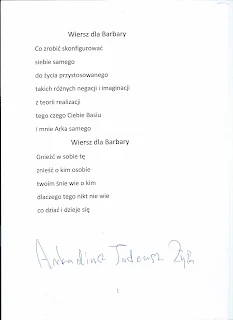 Wiersz dla Barbary
Co zrobić skonfigurować
siebie samego
do życia przystosowanego
takich różnych negacji i imaginacji
z teorii realizacji
tego czego Ciebie Basiu
i mnie Arka samego
Wiersz dla Barbary
Gnieźć w sobie tę
znieść o kim osobie
twoim śnie wie o kim
dlaczego tego nikt nie wie
co dziać i dzieje się
Arkadiusz Tadeusz
1